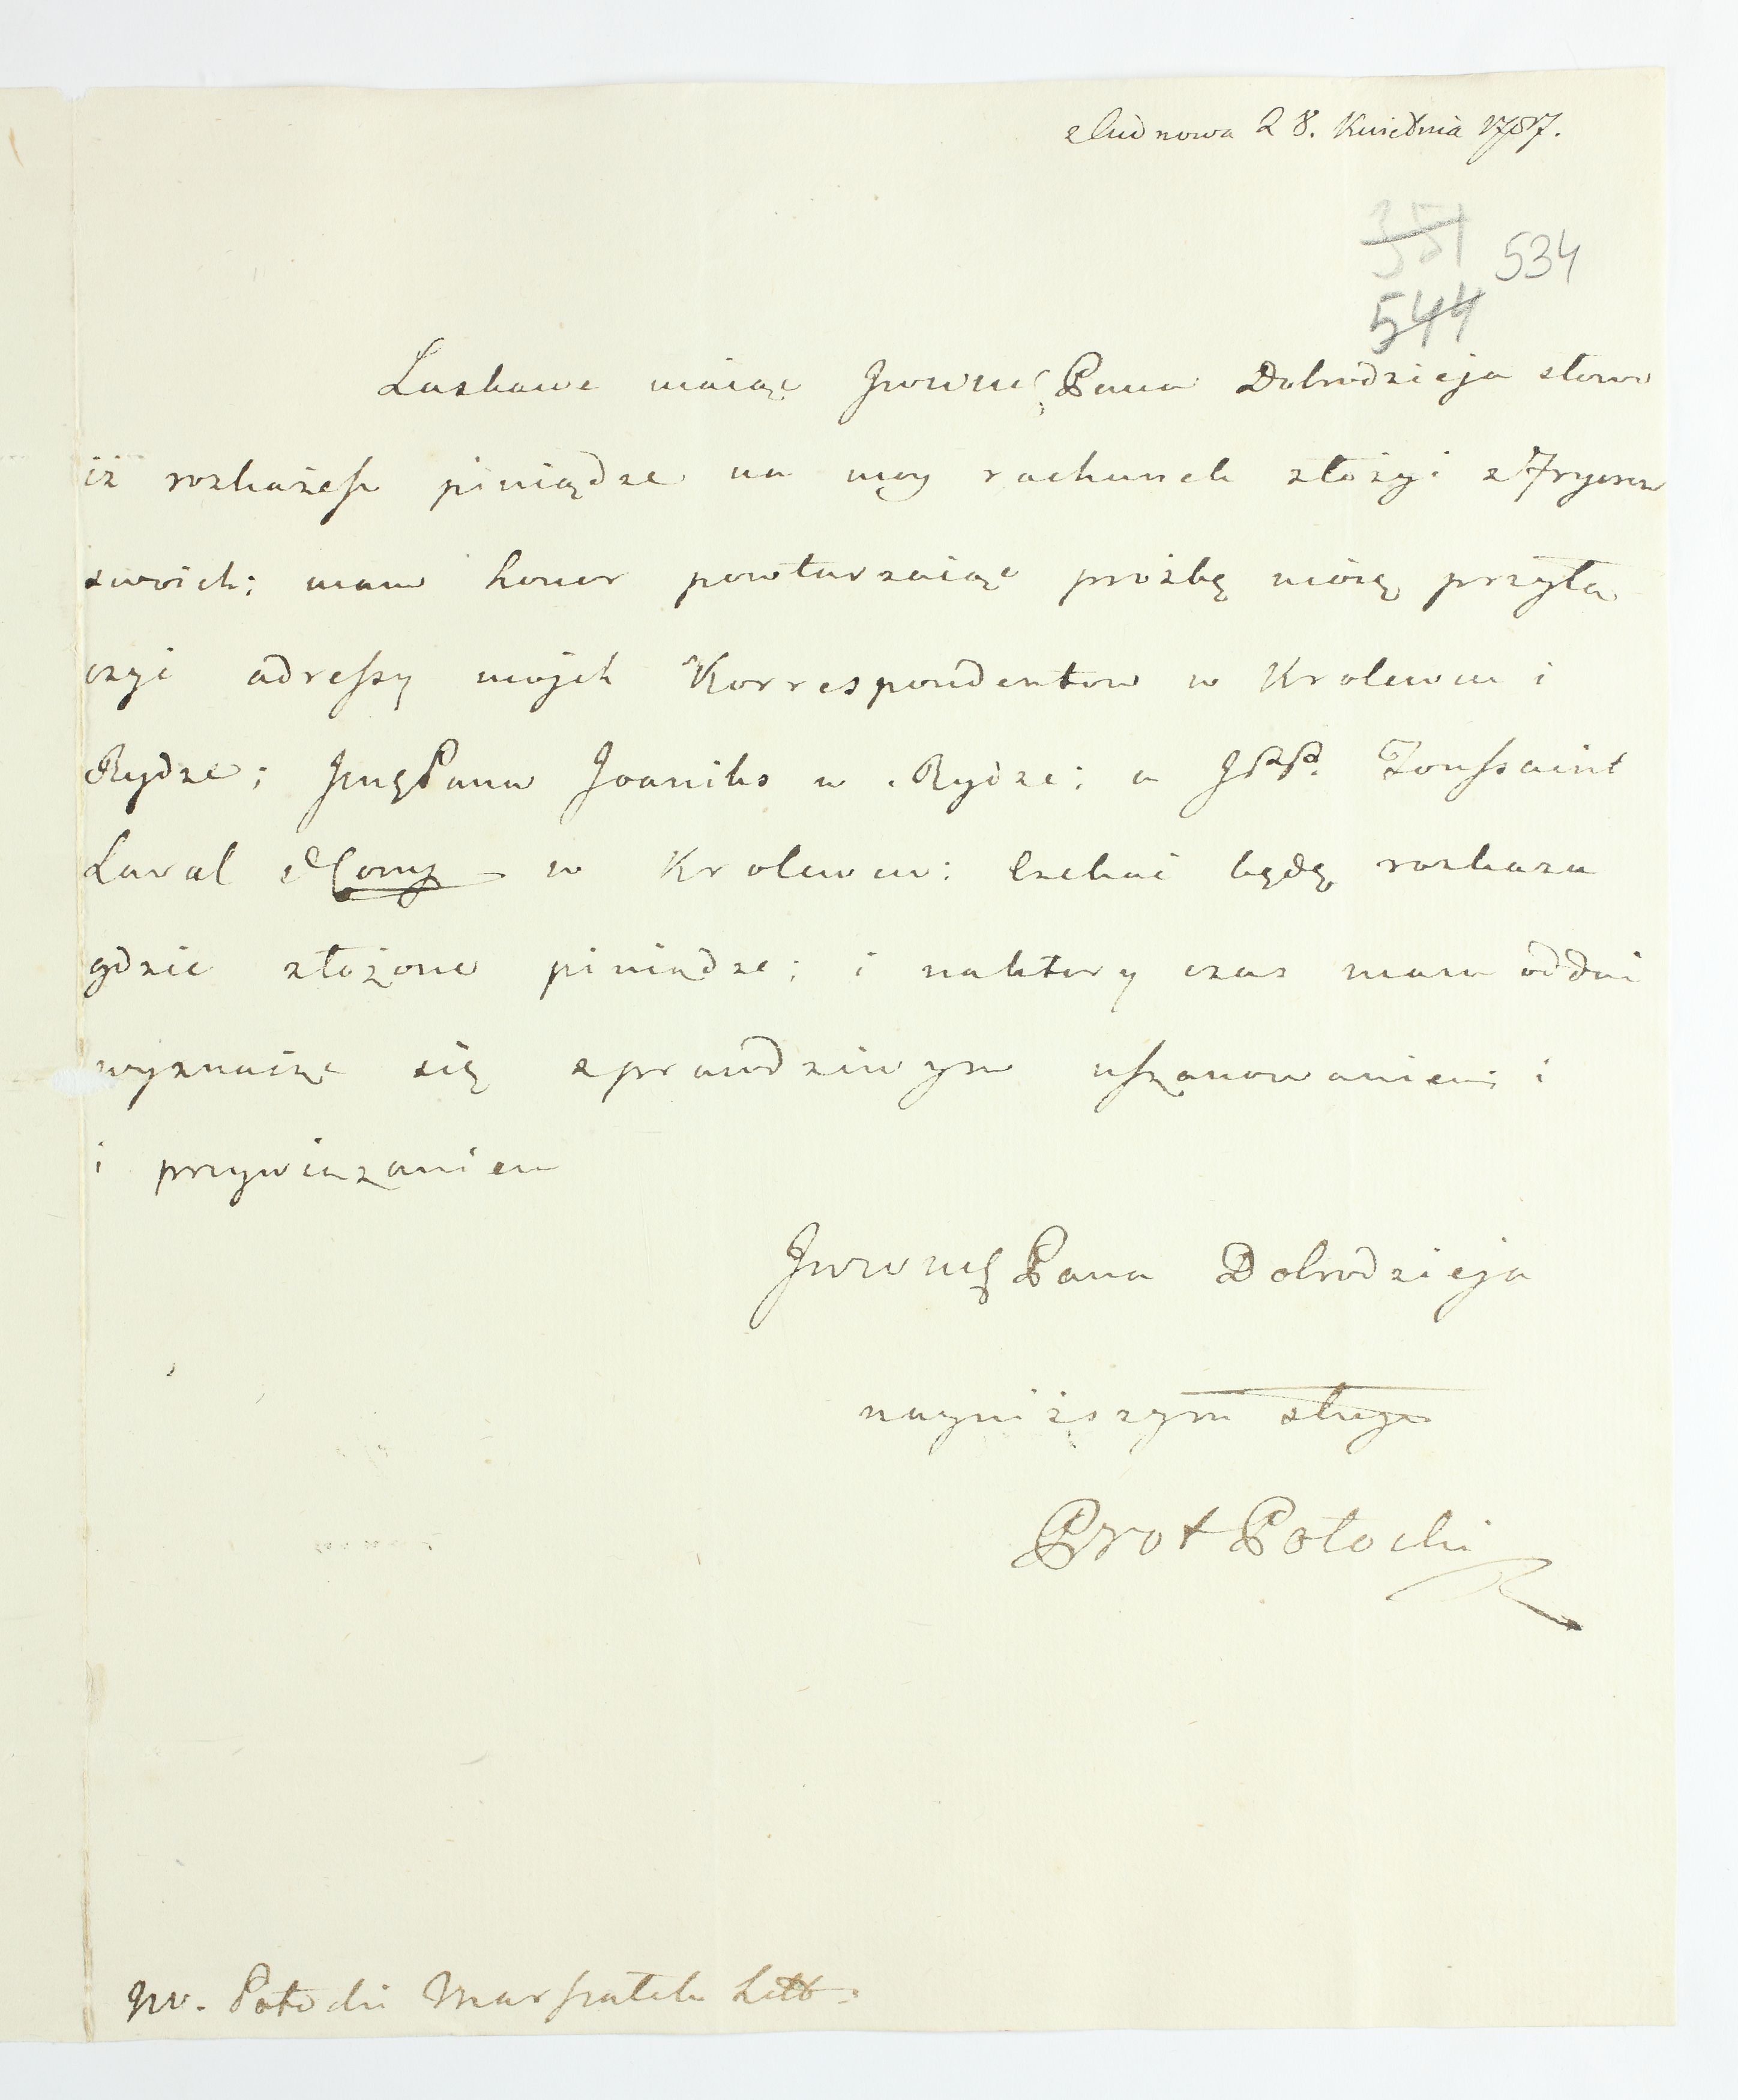 z Cudnowa 28. Kwietnia 1787.
351
534
544
Łaskawe maiąc JWWMĆ Pana Dobrodzieja słowo
iż rozkażesz piniądze na moy rachunek złożyć z Fryorow
swoich; mam honor powtarzaiąc prożbę moię przyłą
czyć adressy mojch Korrespondentow w Krolewcu i
Rydze; JmćPana Joaniks w Rydze; a JPP. Toussaint
Laval & Comp w Krolewcu: Czekać będę rozkazu
gdzie złożone piniądze; i naktory czas mam oddać
wyznaiąc się z prawdziwym uszanowaniem i
i przywiązaniem
JWWMĆ Pana Dobrodzieja
nayniższym sługą
Prot Potocki
JW. Potocki Marszałek Litt: